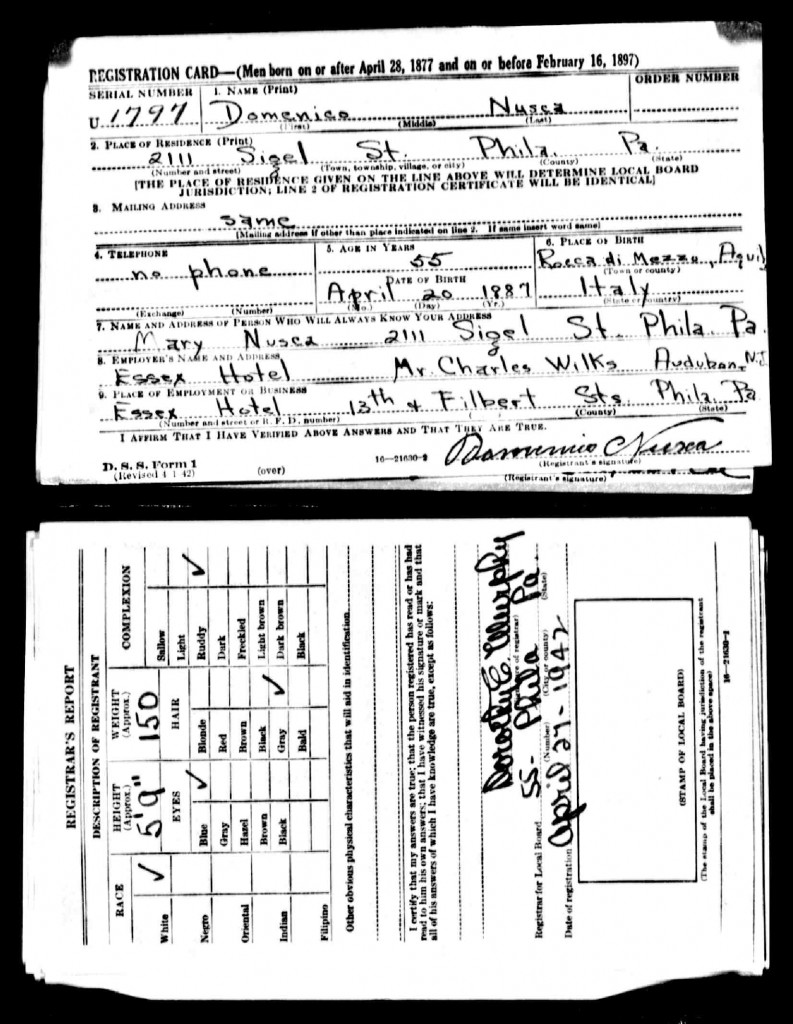 REGISTRATION CARD—(Men born on or after April 28, 1877 and on or before February 16, 1897)
SERIAL NUMBER 1. NAME (Print) ORDER NUMBER
U 1797 Domenico Nusca
(First) (Middle) (Last)
2. PLACE OF RESIDENCE (Print)
2111 Sigel St. Phila. Pa.
(Number and street) (Town, township, village, or city) (County) (State)
[THE PLACE OF RESIDENCE GIVEN ON THE LINE ABOVE WILL DETERMINE LOCAL BOARD
JURISDICTION; LINE 2 OF REGISTRATION CERTIFICATE WILL BE IDENTICAL]
3. MAILING ADDRESS
same
(Mailing address if other than place indicated on line 2. If same insert word same)
4. TELEPHONE 5. AGE IN YEARS 6. PLACE OF BIRTH
no phone 55 Rocca di Mezzo, Aquil
(Town or county)
DATE OF BIRTH
April 20 1887 Italy
(Exchange) (Number) (Mo.) (Day) (Yr.) (State or country)
7. NAME AND ADDRESS OF PERSON WHO WILL ALWAYS KNOW YOUR ADDRESS
Mary Nusca 2111 Sigel St. Phila. Pa.
8. EMPLOYER'S NAME AND ADDRESS
Essex Hotel Mr. Charles Wilks Audubon, N.J.
9. PLACE OF EMPLOYMENT OR BUSINESS
Essex Hotel 13th & Filbert Sts Phila Pa
(Number and street or R. F. D. number) (County) (State)
I AFFIRM THAT I HAVE VERIFIED ABOVE ANSWERS AND THAT THEY ARE TRUE.
D. S. S. Form 1 16—21630-2 Domenico Nusca
(Revised 4-1-42) (over) (Registrant's signature)
(Registrant's signature)
REGISTRAR'S REPORT
DESCRIPTION OF REGISTRANT
RACE HEIGHT (Approx.) WEIGHT (Approx.) COMPLEXION
White ✓ 5'9" 150 Sallow
EYES HAIR Light
Negro Blue ✓ Blonde Ruddy ✓
Gray Red Dark
Oriental Hazel Brown Freckled
Brown Black Light brown
Indian Black Gray ✓ Dark brown
Bald Black
Filipino
Other obvious physical characteristics that will aid in identification
I certify that my answers are true; that the person registered has read or has had
read to him his own answers; that I have witnessed his signature or mark and that
all of his answers of which I have knowledge are true, except as follows:
Dorothy C. Murphy
Registrar for Local Board 55- Phila Pa.
(Number) (City or county) (State)
Date of registration April 27-1942
(STAMP OF LOCAL BOARD)
(The stamp of the Local Board having jurisdiction of the registrant
shall be placed in the above space)
16—21630-1